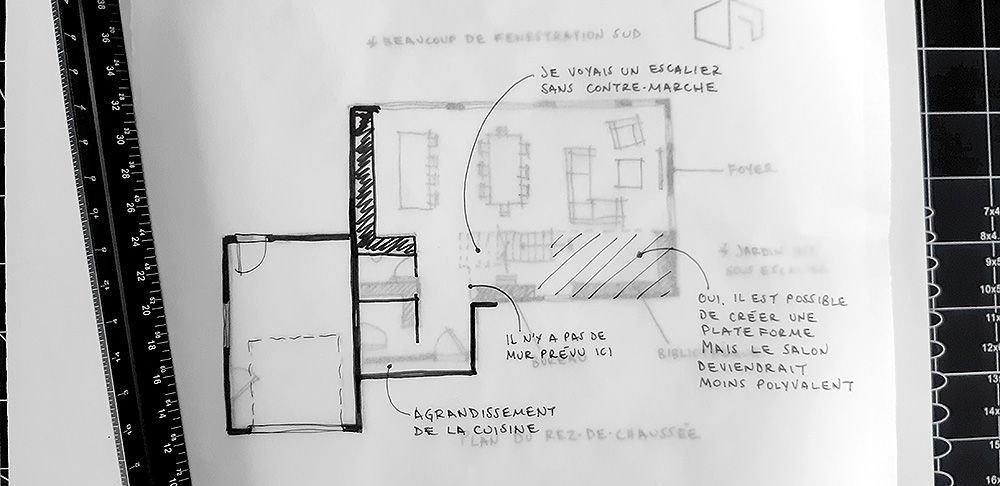 * BEAUCOUP DE FENESTRATION SUD
JE VOYAIS UN ESCALIER
SANS CONTRE-MARCHE
FOYER
* JARDIN
SOUS ESCALIER
OUI, IL EST POSSIBLE
DE CRÉER UNE
PLATEFORME
MAIS LE SALON
DEVIENDRAIT
MOINS POLYVALENT
IL N'Y A PAS DE
MUR PRÉVU ICI
BUREAU
AGRANDISSEMENT
DE LA CUISINE
PLAN DU REZ-DE-CHAUSSÉE
38
36
34
32
30
28
26
24
22
20
18
16
14
12
7x4
8x4
9x5
10x5
11x
12x
13x
14x
15x
16x